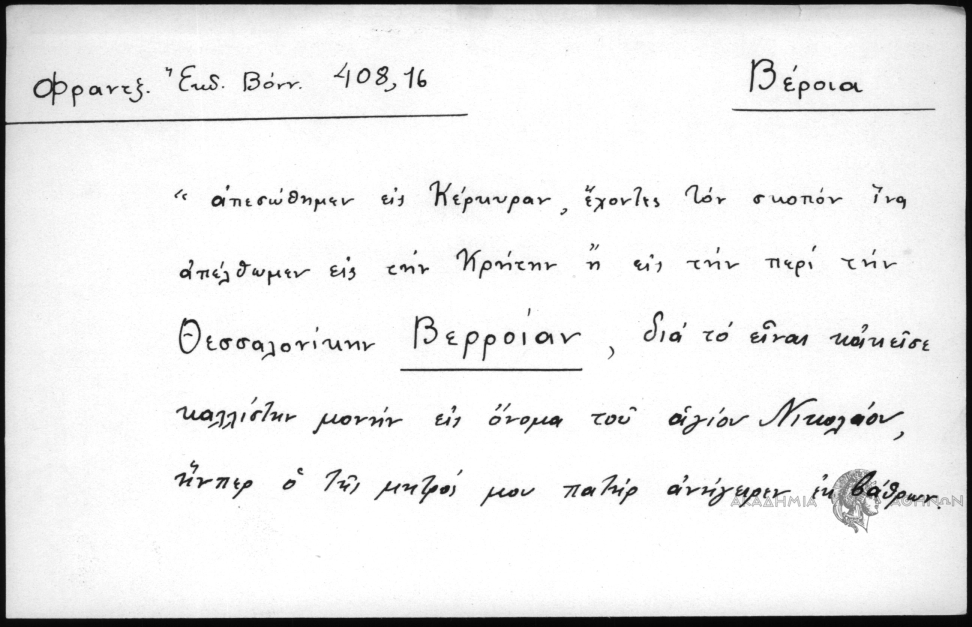 Φραντζ. Ἔκδ. Βόνν. 408,16
Βέροια
“ ἀπεσώθημεν εἰς Κέρκυραν, ἔχοντες τόν σκοπόν ἵνα
ἀπέλθωμεν εἰς τήν Κρήτην ἤ εἰς τήν περί τήν
Θεσσαλονίκην Βερροίαν, διά τό εἶναι κἀκεῖσε
καλλίστην μονήν εἰς ὄνομα τοῦ ἁγίου Νικολάου,
ἥνπερ ὁ τῆς μητρός μου πατήρ ἀνήγειρεν ἐκ βάθρων.
ΑΚΑΔΗΜΙΑ ΑΘΗΝΩΝ